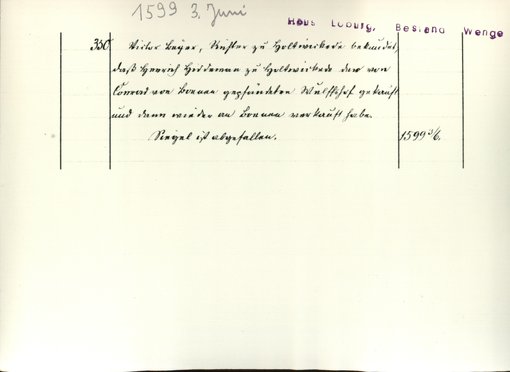 1599 3. Juni
Haus Loburg, Bestand Wenge
330
Victor Beyer, Richter zu Holtwickede bekundet,
daß Henrich Heideman zu Holtwickede den von
Conrad von Boenen gepfändeten Wulfshof gekauft
und dann wieder an Boenen verkauft habe.
Siegel ist abgefallen. 1599 3/6.